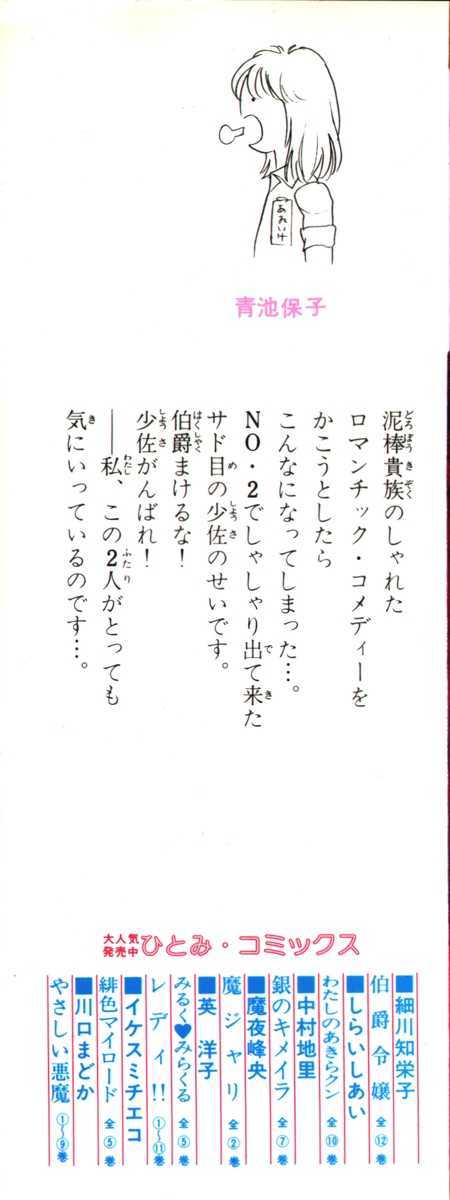 あおいけ
青池保子
泥棒貴族のしゃれた
ロマンチック・コメディーを
かこうとしたら
こんなになってしまった…。
NO・2でしゃしゃり出て来た
サド目の少佐のせいです。
伯爵まけるな！
少佐がんばれ！
――私、この2人がとっても
気にいっているのです…。
大人気
発売中
ひとみ・コミックス
■細川知栄子
伯爵令嬢 全⑫巻
■しらいしあい
わたしのあきらクン 全⑩巻
■中村地里
銀のキメイラ 全⑦巻
■魔夜峰央
魔ジャリ 全②巻
■英 洋子
みるく♥みらくる 全⑤巻
レディ!! ①〜⑪巻
■イケスミチエコ
緋色マイロード 全⑤巻
■川口まどか
やさしい悪魔 ①〜⑨巻